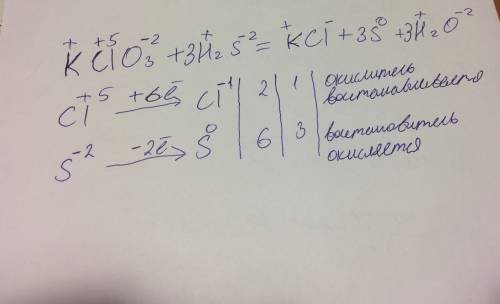 K⁺Cl⁺⁵O₃⁻² + 3H₂⁺S⁻² = K⁺Cl⁻ + 3S⁰ + 3H₂⁺O⁻²
Cl⁺⁵ +6ē→ Cl⁻¹ | 2 | 1 | окислитель
восстанавливается
S⁻² -2ē→ S⁰ | 6 | 3 | восстановитель
окисляется